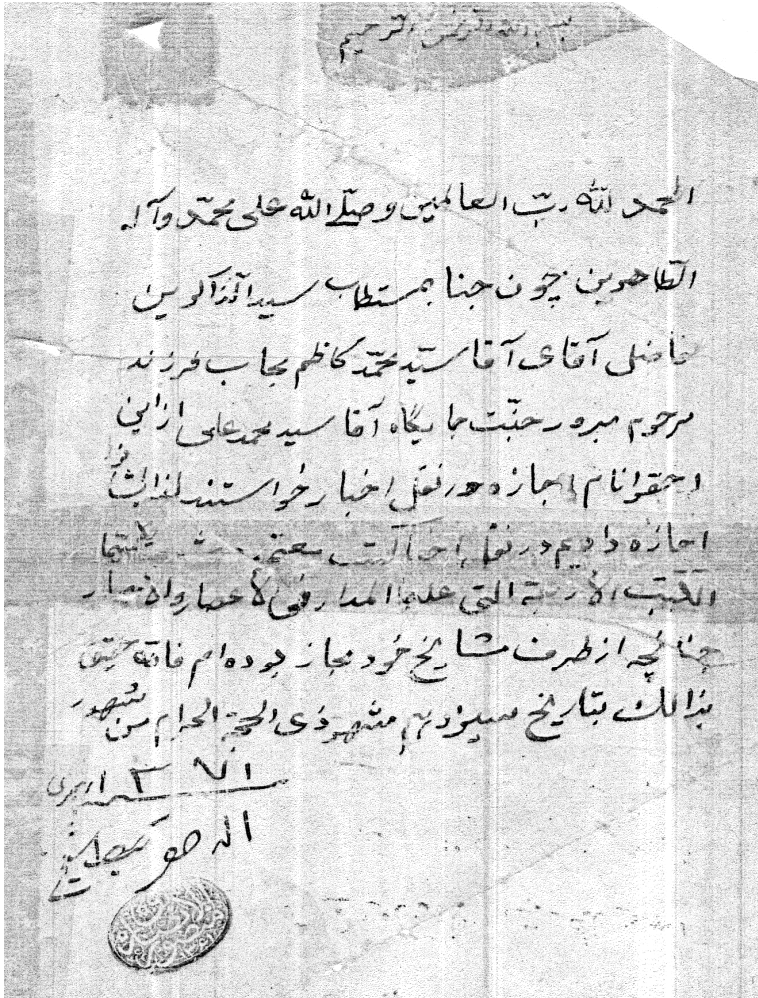 بسم الله الرحمن الرحیم
الحمد لله ربّ العالمین و صلّی الله علی محمّد وآله
الطاهرین چون جناب مستطاب سید الذاکرین
فاضل آقای آقا سیّد محمّد کاظم مجاب فرزند
مرحوم مبرور جنّت جایگاه آقا سید محمد علی از این
احقر انام اجازه در نقل اخبار خواستند لذا
اجازه دادیم در نقل اخبار کتب معتبره
الکتب الاربعة التی علیها المدار فی الاعصار والامصار
چنانچه از طرف مشایخ خود مجاز بوده ام فانه حقیق
بذالک بتاریخ سیزدهم شهر ذی الحجة الحرام من شهور
۱۳۷۱ هجری